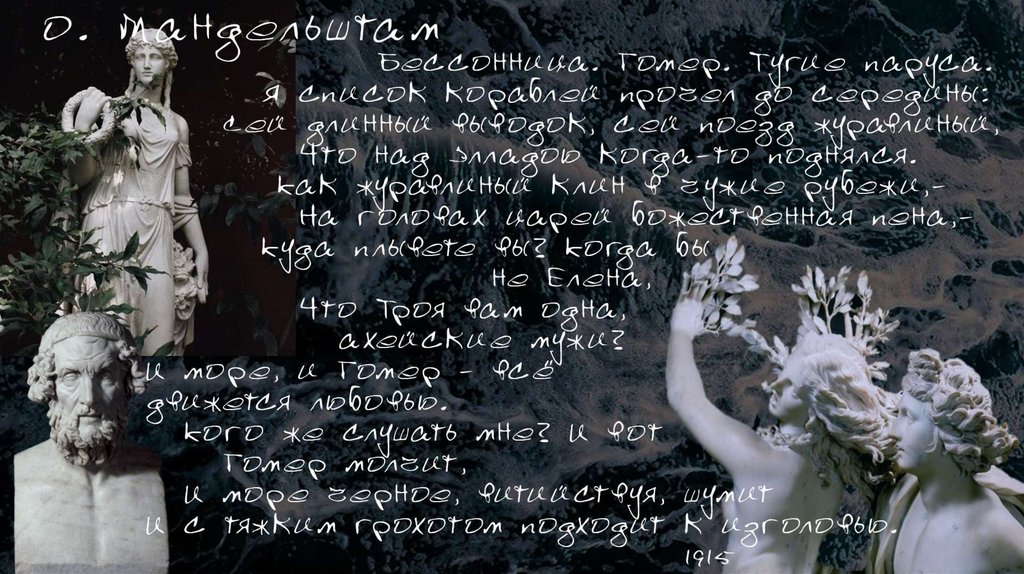 О. Мандельштам
Бессонница. Гомер. Тугие паруса.
Я список кораблей прочел до середины:
Сей длинный выводок, сей поезд журавлиный,
Что над Элладою когда-то поднялся.
Как журавлиный клин в чужие рубежи,-
На головах царей божественная пена,-
Куда плывете вы? Когда бы
не Елена,
Что Троя вам одна,
ахейские мужи?
И море, и Гомер - всё
движется любовью.
Кого же слушать мне? И вот
Гомер молчит,
И море черное, витийствуя, шумит
И с тяжким грохотом подходит к изголовью.
1915